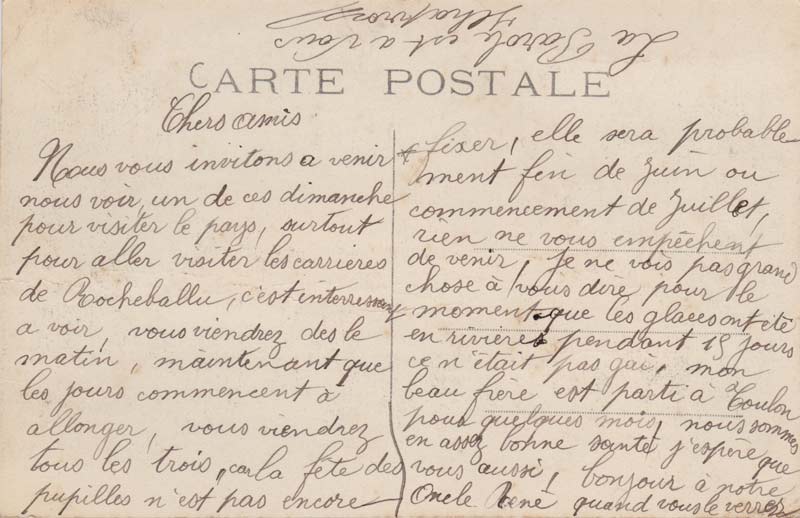 La Parole est a vous
CARTE POSTALE
Chers amis
Nous vous invitons a venir
nous voir, un de ces dimanche
pour visiter le pays, surtout
pour aller visiter les carrieres
de Rocheballu, c'est interressant
a voir, vous viendrez des le
matin, maintenant que
les jours commencent à
allonger, vous viendrez
tous les trois, car la fête des
pupilles n'est pas encore
fixer, elle sera probable
ment fin de Juin ou
commencement de Juillet,
rien ne vous empêchent
de venir, je ne vois pas grand
chose à vous dire pour le
moment, que les glaces ont été
en rivière pendant 15 jours
ce n'était pas gai, mon
beau frère est parti à Toulon
pour quelques mois, nous sommes
en assez bonne santé j'espère que
vous aussi, bonjour à notre
Oncle René quand vous le verrez